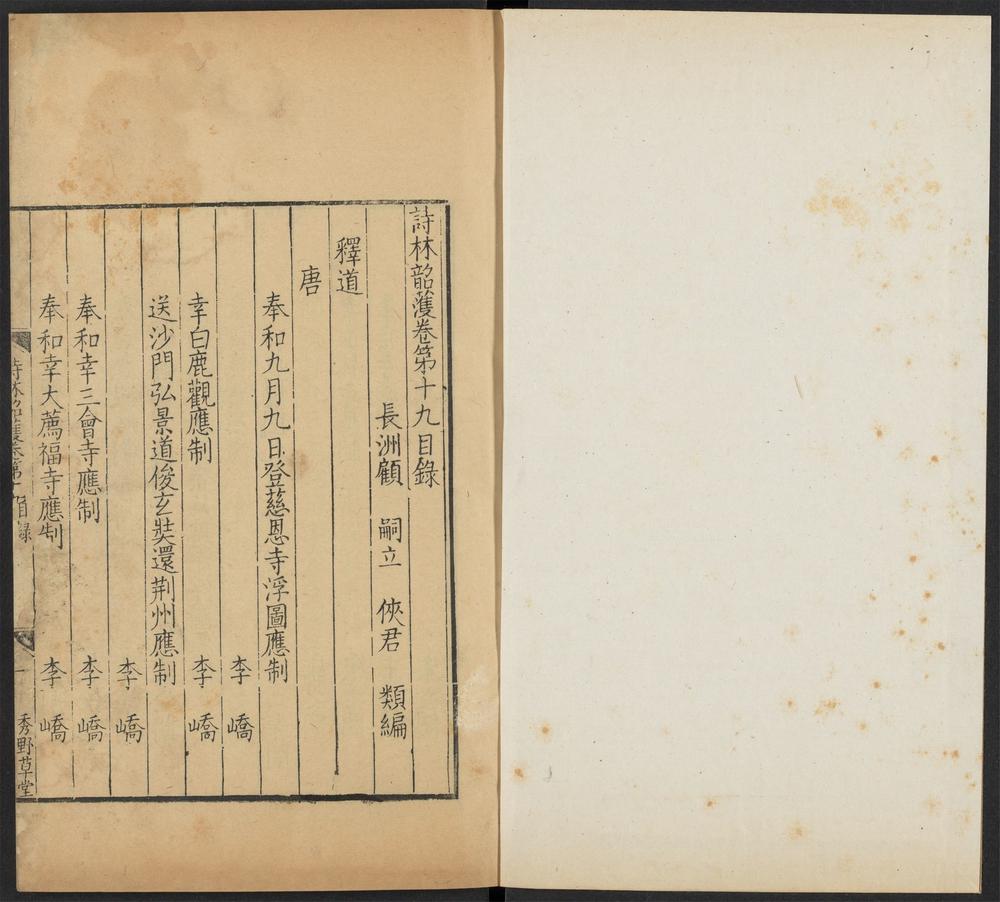 詩林韶濩卷第十九目錄
長洲顧 嗣立 俠君 類編
釋道
唐
奉和九月九日登慈恩寺浮圖應制
李嶠
幸白鹿觀應制 李嶠
送沙門弘景道俊玄奘還荆州應制
李嶠
奉和幸三會寺應制 李嶠
奉和幸大薦福寺應制 李嶠
詩林韶濩卷第 目錄 一 秀野草堂